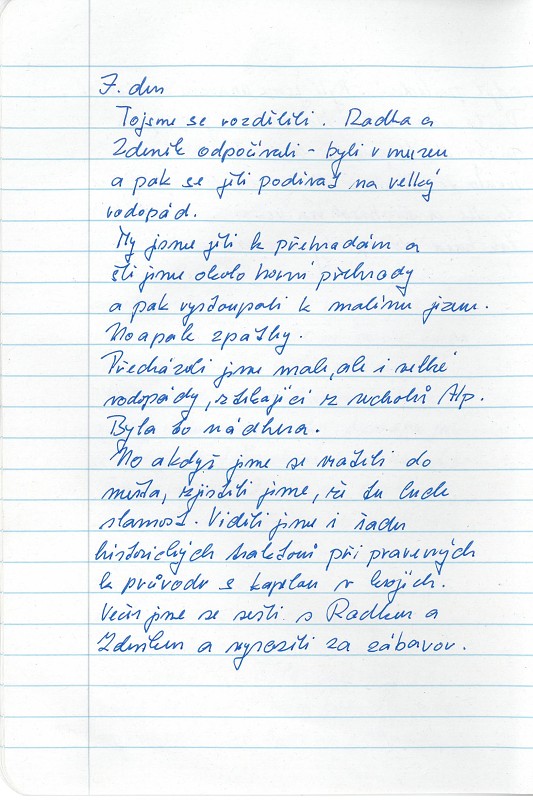 7. den
Tojsme se rozdělili. Radka a
Zdeněk odpočívali - byli v muzeu
a pak se jeli podívat na velký
vodopád.
My jsme jeli k přehradám a
šli jsme okolo horní přehrady
a pak vystoupali k malému jezeru.
No a pak zpátky.
Předcházeli jsme malé, ale i velké
vodopády, stékající z vrcholů Alp.
Byla to nádhera.
No a když jsme se vrátili do
města, zjistili jsme, že tu bude
slavnost. Viděli jsme i řadu
historických traktorů při pravených
k průvodu s kapelou v krojích.
Večer jsme se sešli s Radkou a
Zdeňkem a vyrazili za zábavou.